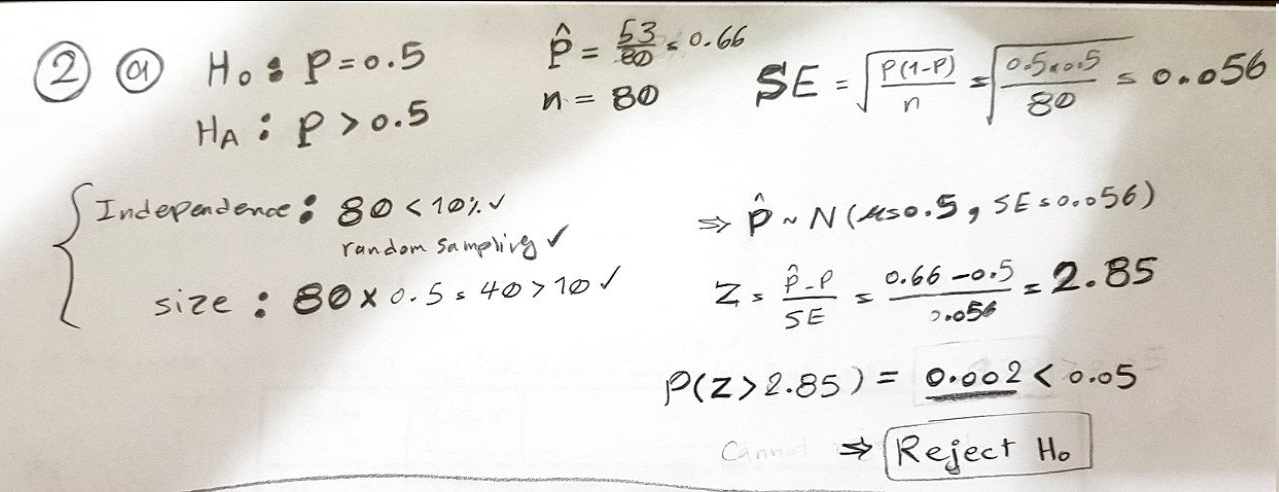 ② ⓐ H₀: P=0.5
H_A: P>0.5
p̂ = 53/80 = 0.66
n = 80
SE = √(P(1-P)/n) = √(0.5×0.5/80) = 0.056
Independence: 80 < 10% ✓
random sampling ✓
size: 80 × 0.5 = 40 > 10 ✓
⇒ p̂ ~ N(μ=0.5, SE=0.056)
Z = (p̂-P)/SE = (0.66-0.5)/0.056 = 2.85
P(Z>2.85) = 0.002 < 0.05
⇒ Reject H₀